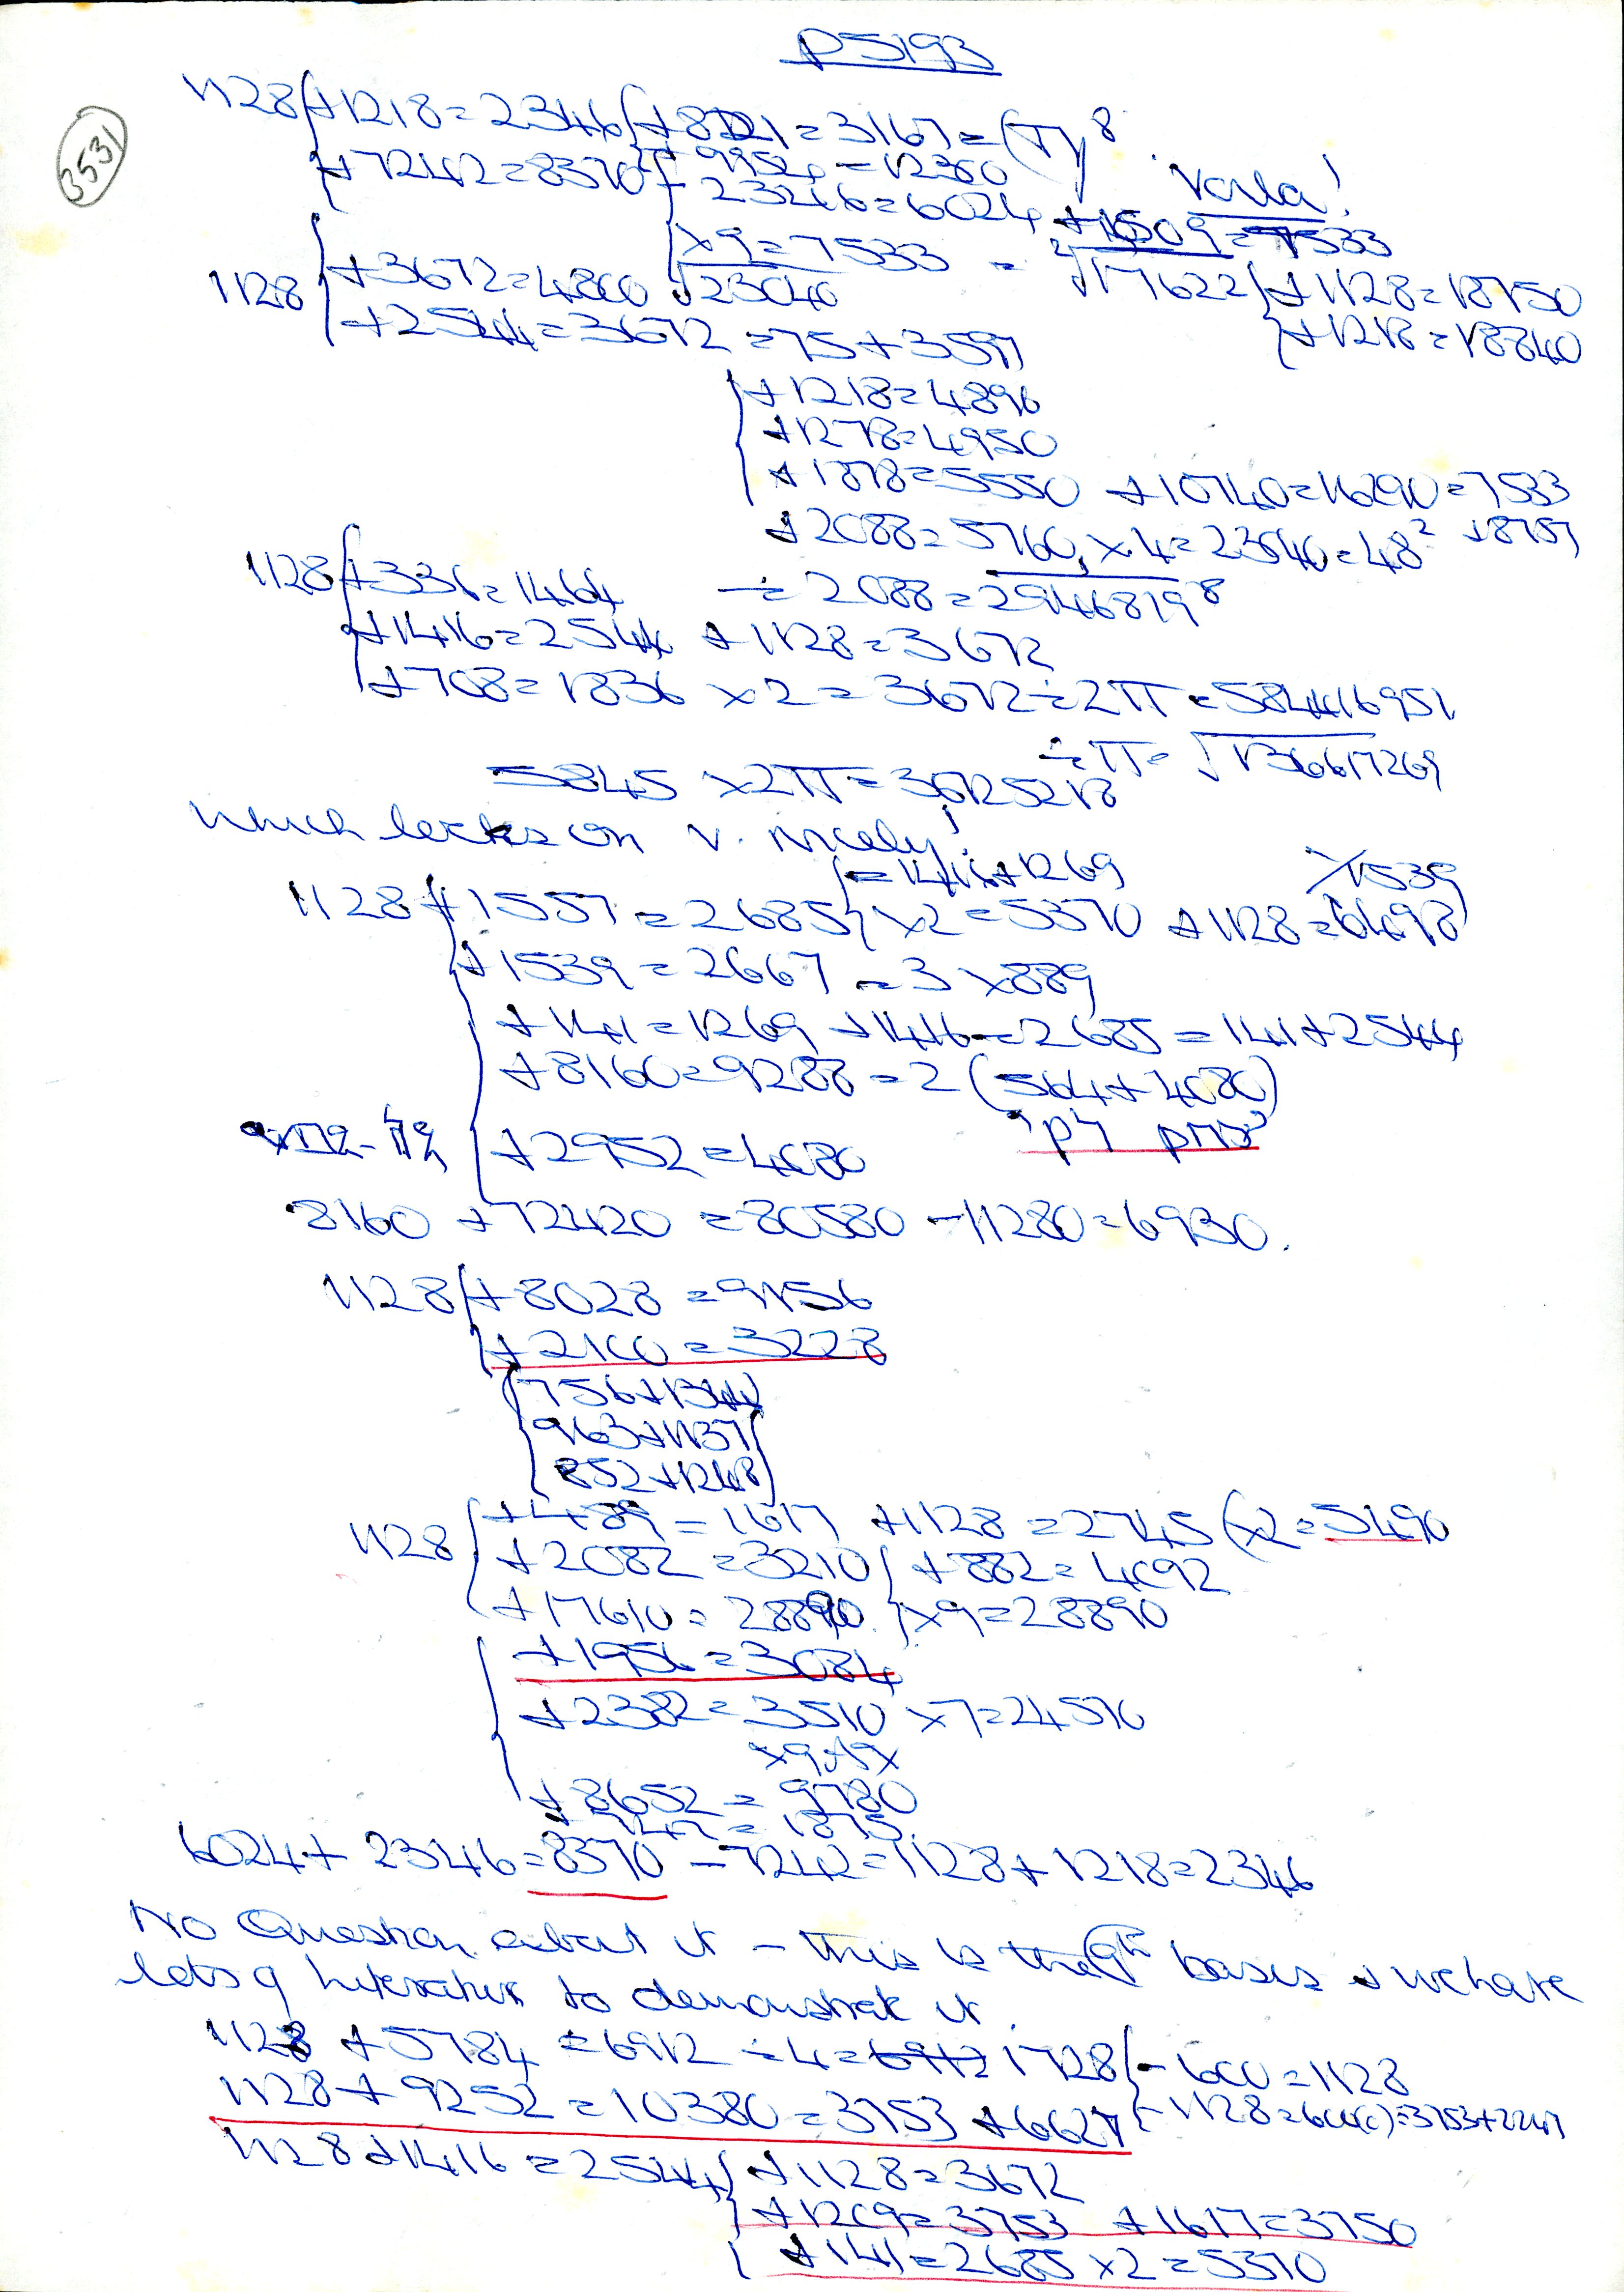 P5193
3531
1128 { +1218 = 2346 { +821 = 3167 = (π)⁸
+7242 = 8370 { + 9952 = 12360
- 2346 = 6024 + 1509 = 7533
Voila!
1128 { +3672 = 4800 √23040
x9 = 7533 = √17622 { +1128 = 18750
+2544 = 3672 = 75 + 3597 { +1218 = 18840
{ +1218 = 4896
+1278 = 4950
+1878 = 5550 + 10740 = 16290 = 7533
+ 2088 = 5760, x 4 = 23040 = 48² + 8757
1128 { +336 = 1464 ÷ 2088 = 29468198
+1416 = 2544 + 1128 = 3672
+708 = 1836 x 2 = 3672 ÷ 2π = 584416951
÷ π = √136617269
5845 x 2π = 36725218
which locks on v. nicely!
{ = 1416 + 1269
1128 { +1557 = 2685 } x2 = 5370 + 1128 = 6498
+1539 = 2667 = 3 x 889
+141 = 1269 + 1416 = 2685 = 141 + 2544
+8160 = 9288 = 2 (564 + 4080)
+2952 = 4080
8160 + 72420 = 80580 - 11280 = 6930.
1128 { +8028 = 9156
+2100 = 3228
{ 756 + 1344
963 + 1137
852 + 1248 }
1128 { +489 = 1617 + 1128 = 2745 ( x2 = 5490
+2082 = 3210 { +882 = 4092
+17610 = 28890. { x9 = 28890
{ +1956 = 3084
+2382 = 3510 x 7 = 24570
+8652 = 9780
+747 = 1875
6024 + 2346 = 8370 - 7242 = 1128 + 1218 = 2346
No Question about it - this is the 9th basis & we have
lots of literature to demonstrate it.
1128 + 5784 = 6912 ÷ 4 = 6912 1728 { - 600 = 1128
1128 + 9252 = 10380 = 3753 + 6627 { - 1128 = 600(0) = 3753 + 2247
1128 + 1416 = 2544 { +1128 = 3672
+1209 = 3753 + 1617 = 3750
+141 = 2685 x 2 = 5370